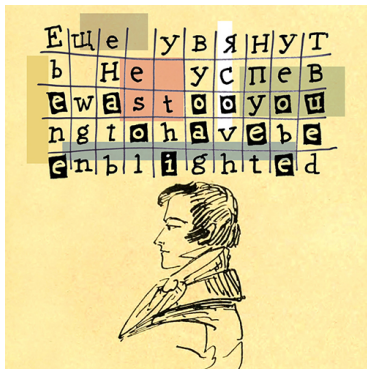 Еще увянут
ь Не успев
ewastooyou
ngtohavebe
enblighted